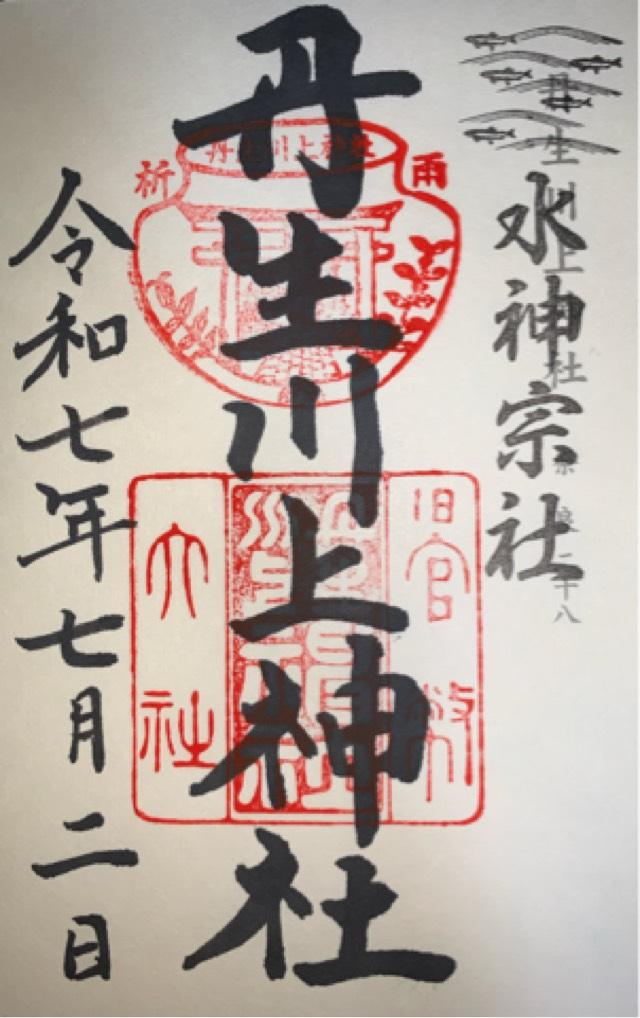 水神宗社
丹生川上神社
令和七年七月二日
雨
祈
丹生川上神社
旧官幣
大社